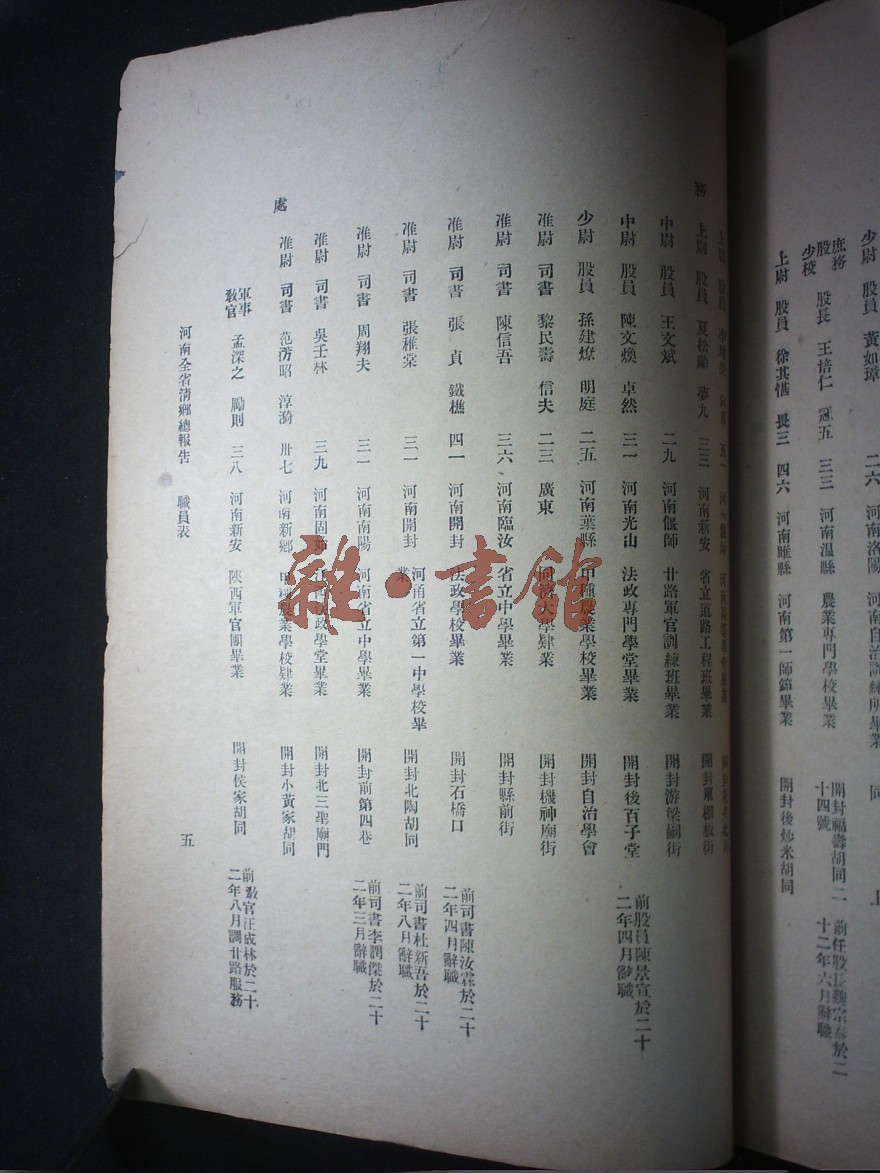 少尉 股員 黃如璋 二六 河南洛陽 河南自治訓練所畢業 同 上
庶務股長 少校 王培仁 冠五 三三 河南溫縣 農業專門學校畢業 開封福壽胡同二十四號 前任股長魏宗泰於二十二年六月辭職
上尉 股員 徐其惛 畏三 四六 河南睢縣 河南第一師範畢業 開封後炒米胡同
務 上尉 股員 夏松齡 夢九 三三 河南新安 省立道路工程班畢業 開封東棚板街
中尉 股員 王文斌 二九 河南偃師 廿路軍官訓練班畢業 開封游梁祠街
中尉 股員 陳文煥 卓然 三一 河南光山 法政專門學堂畢業 開封後百子堂 前股員陳景宣於二十二年四月辭職
少尉 股員 孫建燎 明庭 二五 河南葉縣 甲種農業學校畢業 開封自治學會
准尉 司書 黎民壽 信夫 二三 廣東 河南大學肄業 開封機神廟街
准尉 司書 陳信吾 三六 河南臨汝 省立中學畢業 開封縣前街
准尉 司書 張 貞 鐵樵 四一 河南開封 法政學校畢業 開封石橋口 前司書陳汝霖於二十二年四月辭職
准尉 司書 張稚棠 三一 河南開封 河南省立第一中學校畢業 開封北陶胡同 前司書杜新吾於二十二年八月辭職
准尉 司書 周翔夫 三一 河南南陽 河南省立中學畢業 開封前第四巷 前司書李潤傑於二十二年三月辭職
准尉 司書 吳壬林 三九 河南固始 法政學堂畢業 開封北三聖廟門
處 准尉 司書 范澇昭 淳漪 卅七 河南新鄉 甲種農業學校肄業 開封小黃家胡同
軍事教官 孟深之 勵則 三八 河南新安 陝西軍官團畢業 開封侯家胡同 前教官汪成林於二十二年八月調廿路服務
河南全省淸鄉總報告 職員表 五
雜·書館